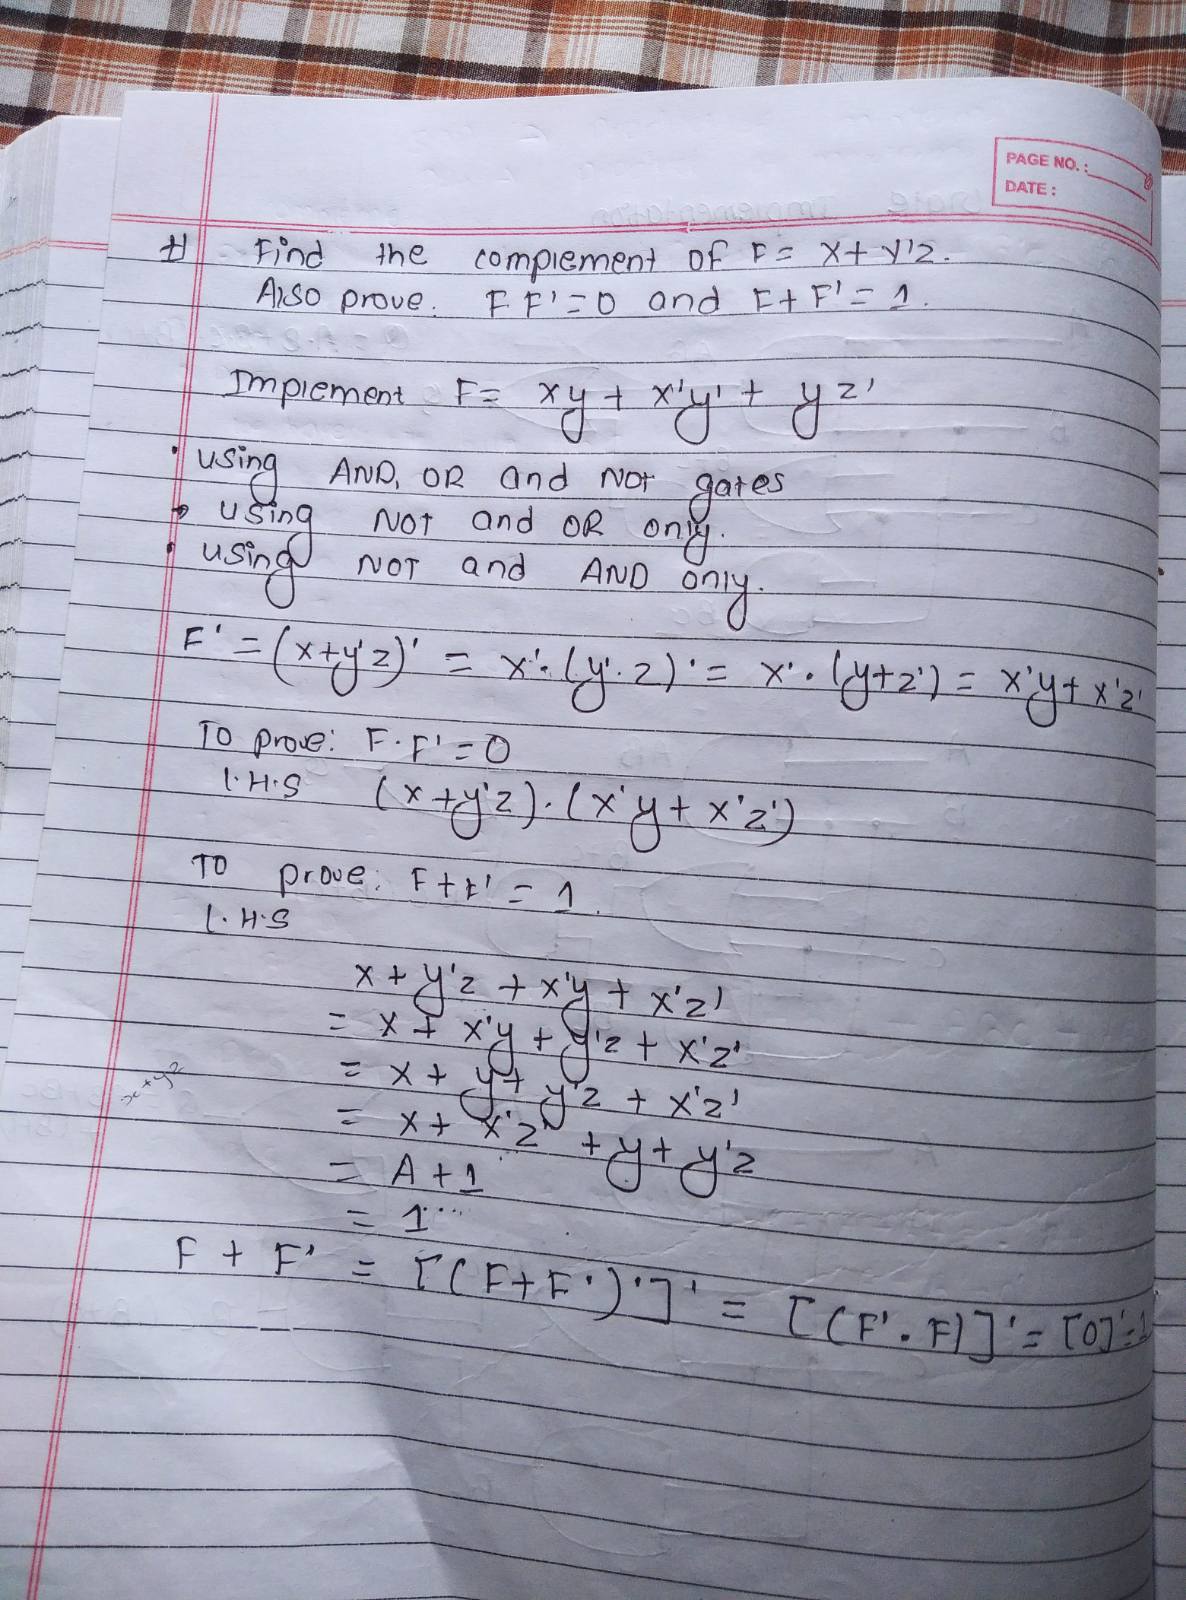 PAGE NO. :
DATE :
# Find the complement of F = x + y'z.
Also prove. F F' = 0 and F + F' = 1.
Implement F = xy + x'y' + yz'
• using AND, OR and NOT gates
• using NOT and OR only.
• using NOT and AND only.
F' = (x+y'z)' = x'. (y'.z)' = x'. (y+z') = x'y + x'z'
To prove: F.F' = 0
L.H.S (x+y'z).(x'y + x'z')
To prove: F+F' = 1.
L.H.S
x + y'z + x'y + x'z'
= x + x'y + y'z + x'z'
= x + y + y'z + x'z'
x+yz
= x + x'z' + y + y'z
= A + 1
= 1
F + F' = [(F+F')']' = [(F'.F)]' = [0]' = 1